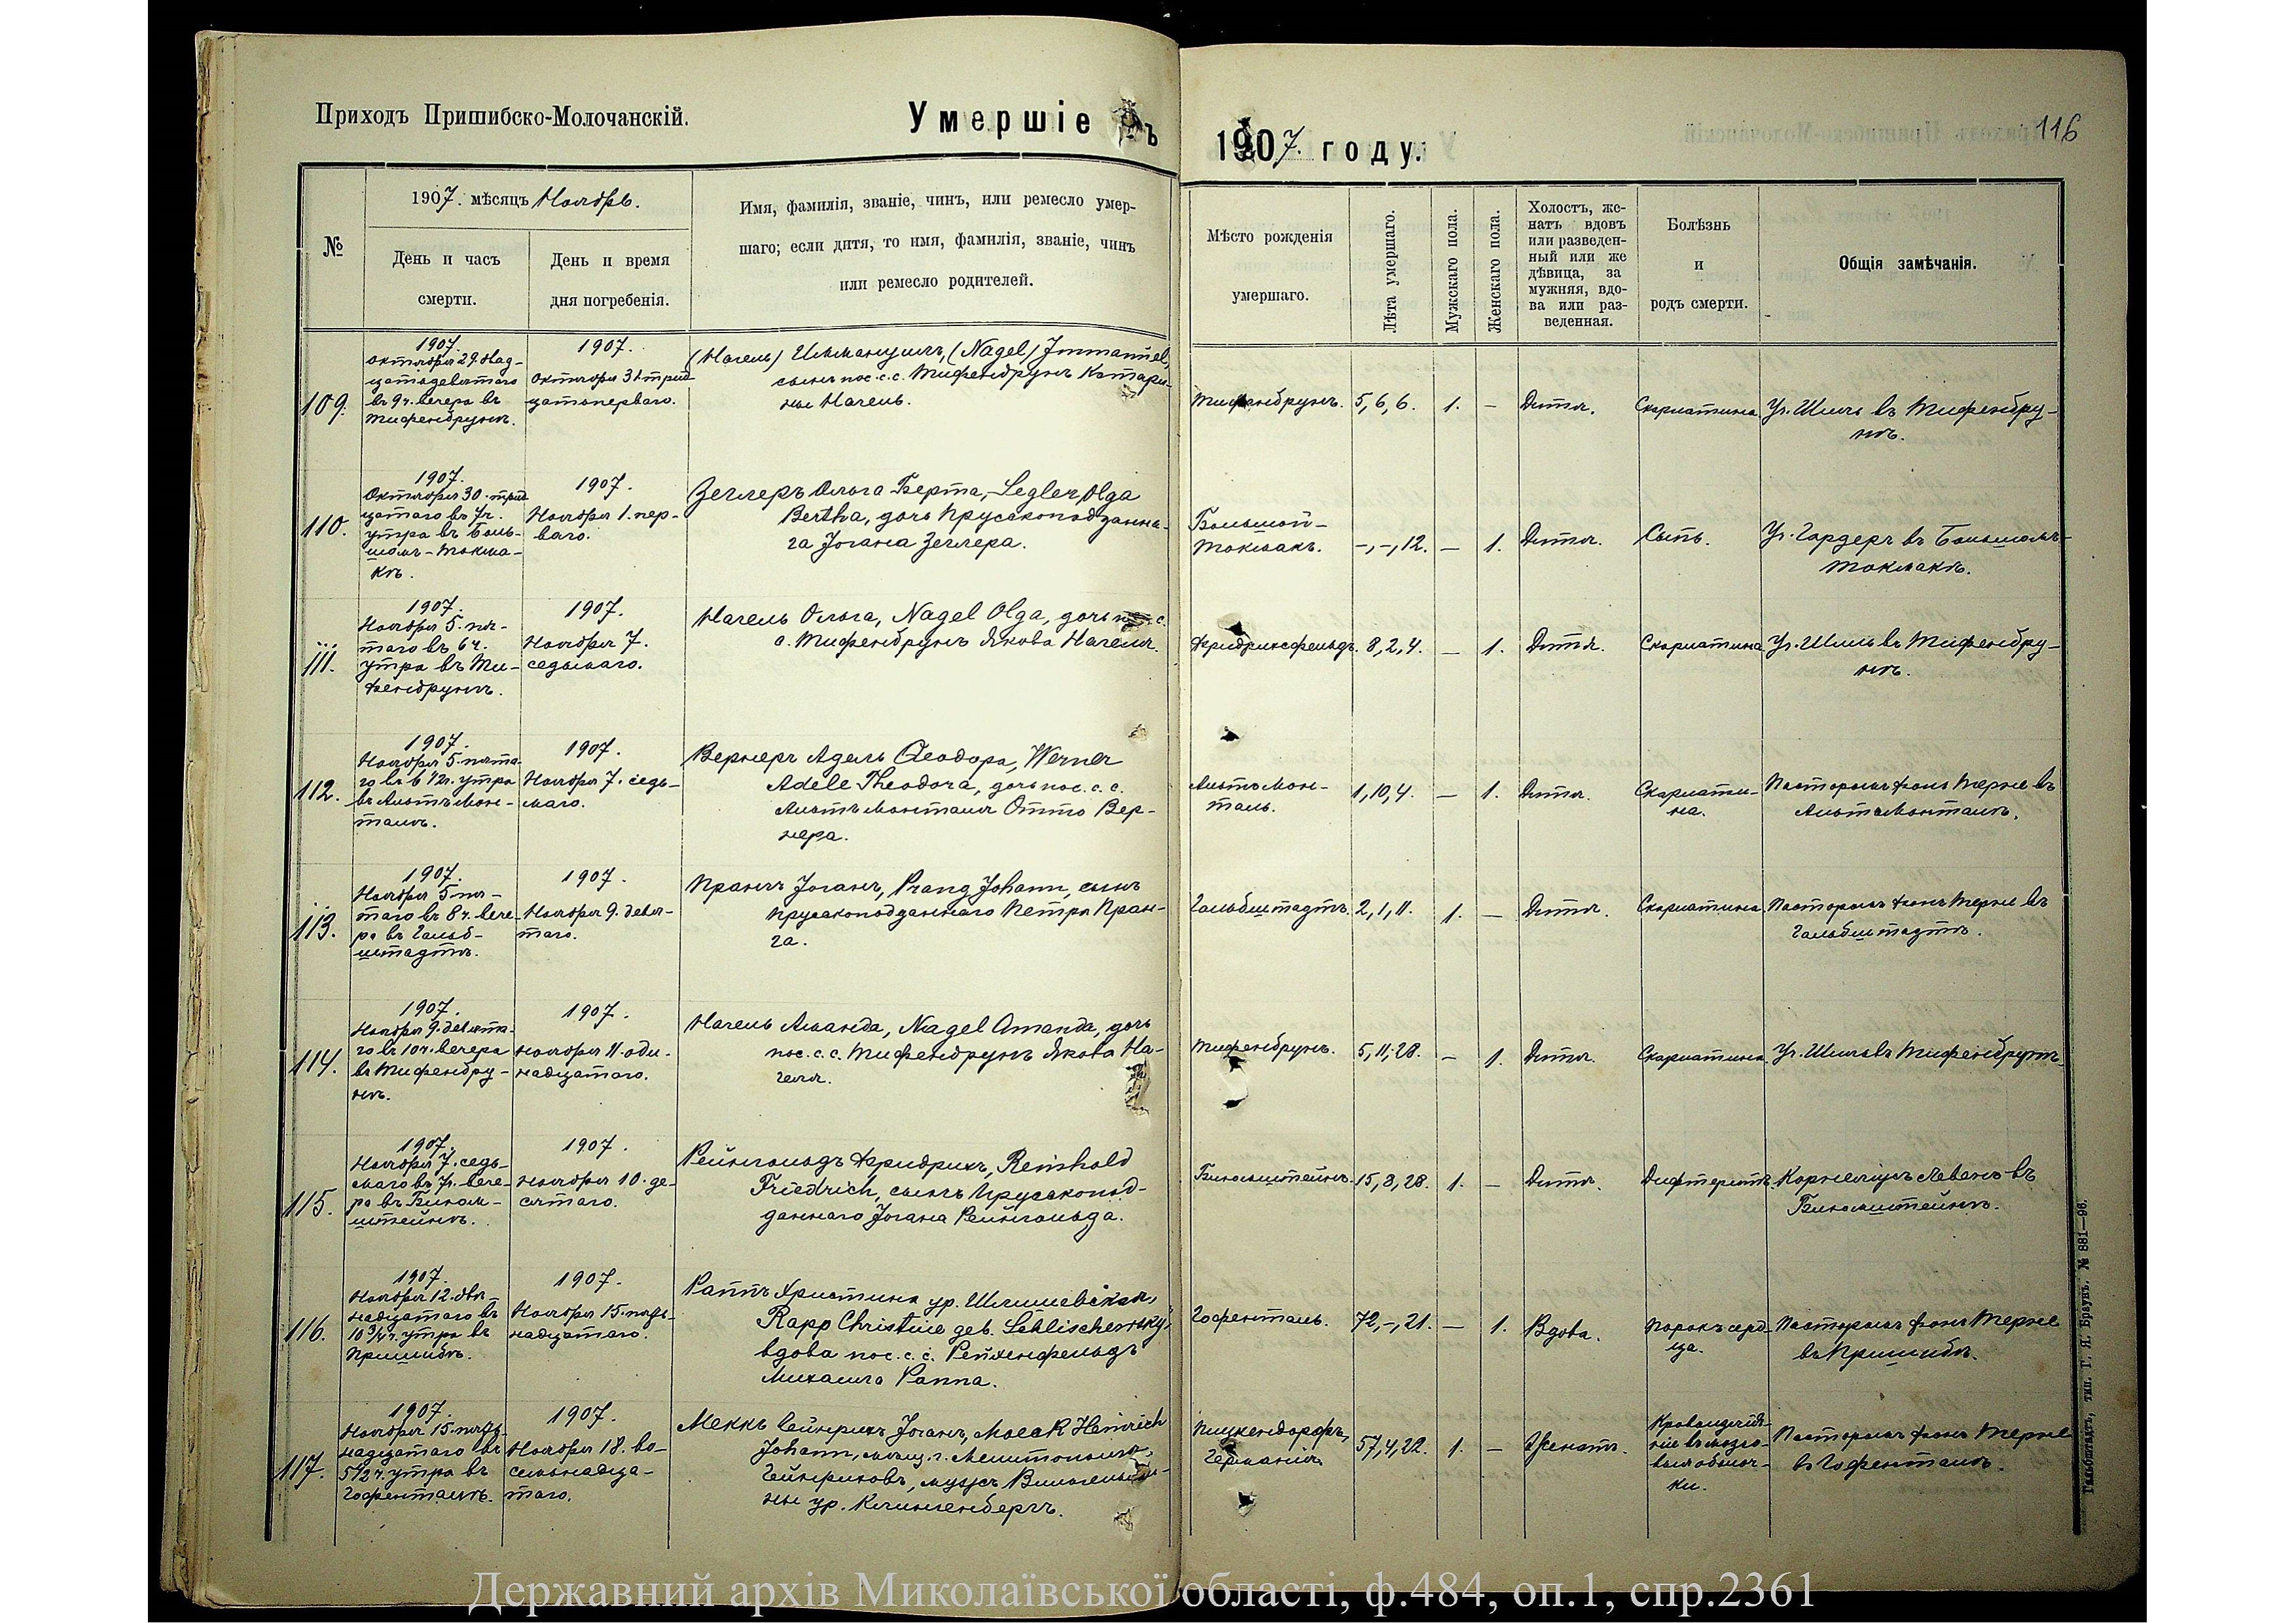 Приходъ Пришибско-Молочанскій.
Умершіе ъ
1907. году.
116
№
1907. мѣсяцъ Ноябрь.
День и часъ
смерти.
День и время
дня погребенія.
Имя, фамилія, званіе, чинъ, или ремесло умер-
шаго; если дитя, то имя, фамилія, званіе, чинъ
или ремесло родителей.
Мѣсто рожденія
умершаго.
Лѣта умершаго.
Мужскаго пола.
Женскаго пола.
Холостъ, же-
натъ вдовъ
или разведен-
ный или же
дѣвица, за
мужняя, вдо-
ва или раз-
веденная.
Болѣзнь
и
родъ смерти.
Общія замѣчанія.
109.
1907.
Октября 29. двад-
цатодевятаго
въ 9 ч. вечера въ
Тифенбрунѣ.
1907.
Октября 31 трид-
цатьперваго.
(Нагель) Иммануилъ, (Nagel) Immanuel,
сынъ пос. с. с. Тифенбрунъ Катари-
ны Нагель.
Тифенбрунъ.
5, 6, 6.
1.
—
Дитя.
Скарлатина
Уч. Шиль въ Тифенбру-
нѣ.
110.
1907.
Октября 30. трид-
цатаго въ 7 ч.
утра въ Боль-
шомъ-Токма-
кѣ.
1907.
Ноября 1. пер-
ваго.
Зеглеръ Ольга Берта, Segler Olga
Bertha, дочь прусскоподданна-
го Іогана Зеглера.
Большой-
Токмакъ.
-, -, 12.
—
1.
Дитя.
Сыпь.
Уч. Гардеръ въ Большомъ-
Токмакѣ.
111.
1907.
Ноября 5. пя-
таго въ 6 ч.
утра въ Ти-
фенбрунѣ.
1907.
Ноября 7.
седьмаго.
Нагель Ольга, Nagel Olga, дочь с.
с. Тифенбрунъ Якова Нагеля.
Фридрихсфельдъ.
8, 2, 4.
—
1.
Дитя.
Скарлатина
Уч. Шиль въ Тифенбру-
нѣ.
112.
1907.
Ноября 5. пята-
го въ 6 1/2 ч. утра
въ Альтъ Мон-
талѣ.
1907.
Ноября 7. седь-
маго.
Вернеръ Адель Ѳеодора, Werner
Adele Theodora, дочь пос. с. с.
Альтъ Монталя Отто Вер-
нера.
Альтъ Мон-
таль.
1, 10, 4.
—
1.
Дитя.
Скарлати-
на.
Пасторомъ фонъ Терне въ
Альтъ Монталѣ.
113.
1907.
Ноября 5 пя-
таго въ 8 ч. вече-
ра въ Гальб-
штадтѣ.
1907.
Ноября 9. девя-
таго.
Прангъ Іоганъ, Prang Johann, сынъ
прусскоподданнаго Петра Пран-
га.
Гальбштадтъ.
2, 1, 11.
1.
—
Дитя.
Скарлатина
Пасторомъ фонъ Терне въ
Гальбштадтѣ.
114.
1907.
Ноября 9. девята-
го въ 10 ч. вечера
въ Тифенбру-
нѣ.
1907.
Ноября 11. оди-
надцатаго.
Нагель Аманда, Nagel Amanda, дочь
пос. с. с. Тифенбрунъ Якова На-
геля.
Тифенбрунъ.
5, 11, 28.
—
1.
Дитя.
Скарлатина.
Уч. Шиль въ Тифенбрунѣ.
115.
1907.
Ноября 7. седь-
маго въ 7 ч. вече-
ра въ Блюм-
штейнѣ.
1907.
Ноября 10. де-
сятаго.
Рейнгольдъ Фридрихъ, Reinhold
Friedrich, сынъ прусскопод-
даннаго Іогана Рейнгольда.
Блюмштейнъ.
15, 3, 28.
1.
—
Дитя.
Дифтеритъ.
Корнеліусъ Левенъ въ
Блюмштейнѣ.
116.
1907.
Ноября 12. два-
надцатаго въ
10 3/4 ч. утра въ
Пришибѣ.
1907.
Ноября 15. пят-
надцатаго.
Раппъ Христина ур. Шлишевская,
Rapp Christine geb. Schlischewsky,
вдова пос. с. с. Рейхенфельдъ
Михаила Раппа.
Гофенталь.
72, -, 21.
—
1.
Вдова.
Порокъ серд-
ца.
Пасторомъ фонъ Терне
въ Пришибѣ.
117.
1907.
Ноября 15. пят-
надцатаго въ
5 1/2 ч. утра въ
Гофенталѣ.
1907.
Ноября 18. во-
семьнадца-
таго.
Меккъ Гейнрихъ Іоганъ, Heinrich
Johann, мѣщ. г. Мелитополя
мужъ Вильгельми-
ны ур. Клингенбергъ.
Германія.
57, 4, 22.
1.
—
Женатъ.
Кровоизлія-
ніе въ мозго-
выя оболоч-
ки.
Пасторомъ фонъ Терне
въ Гофенталѣ.
Гальбштадтъ, тип. Г. Я. Браунъ. № 881—96.
Державний архів Миколаївської області, ф.484, оп.1, спр.2361